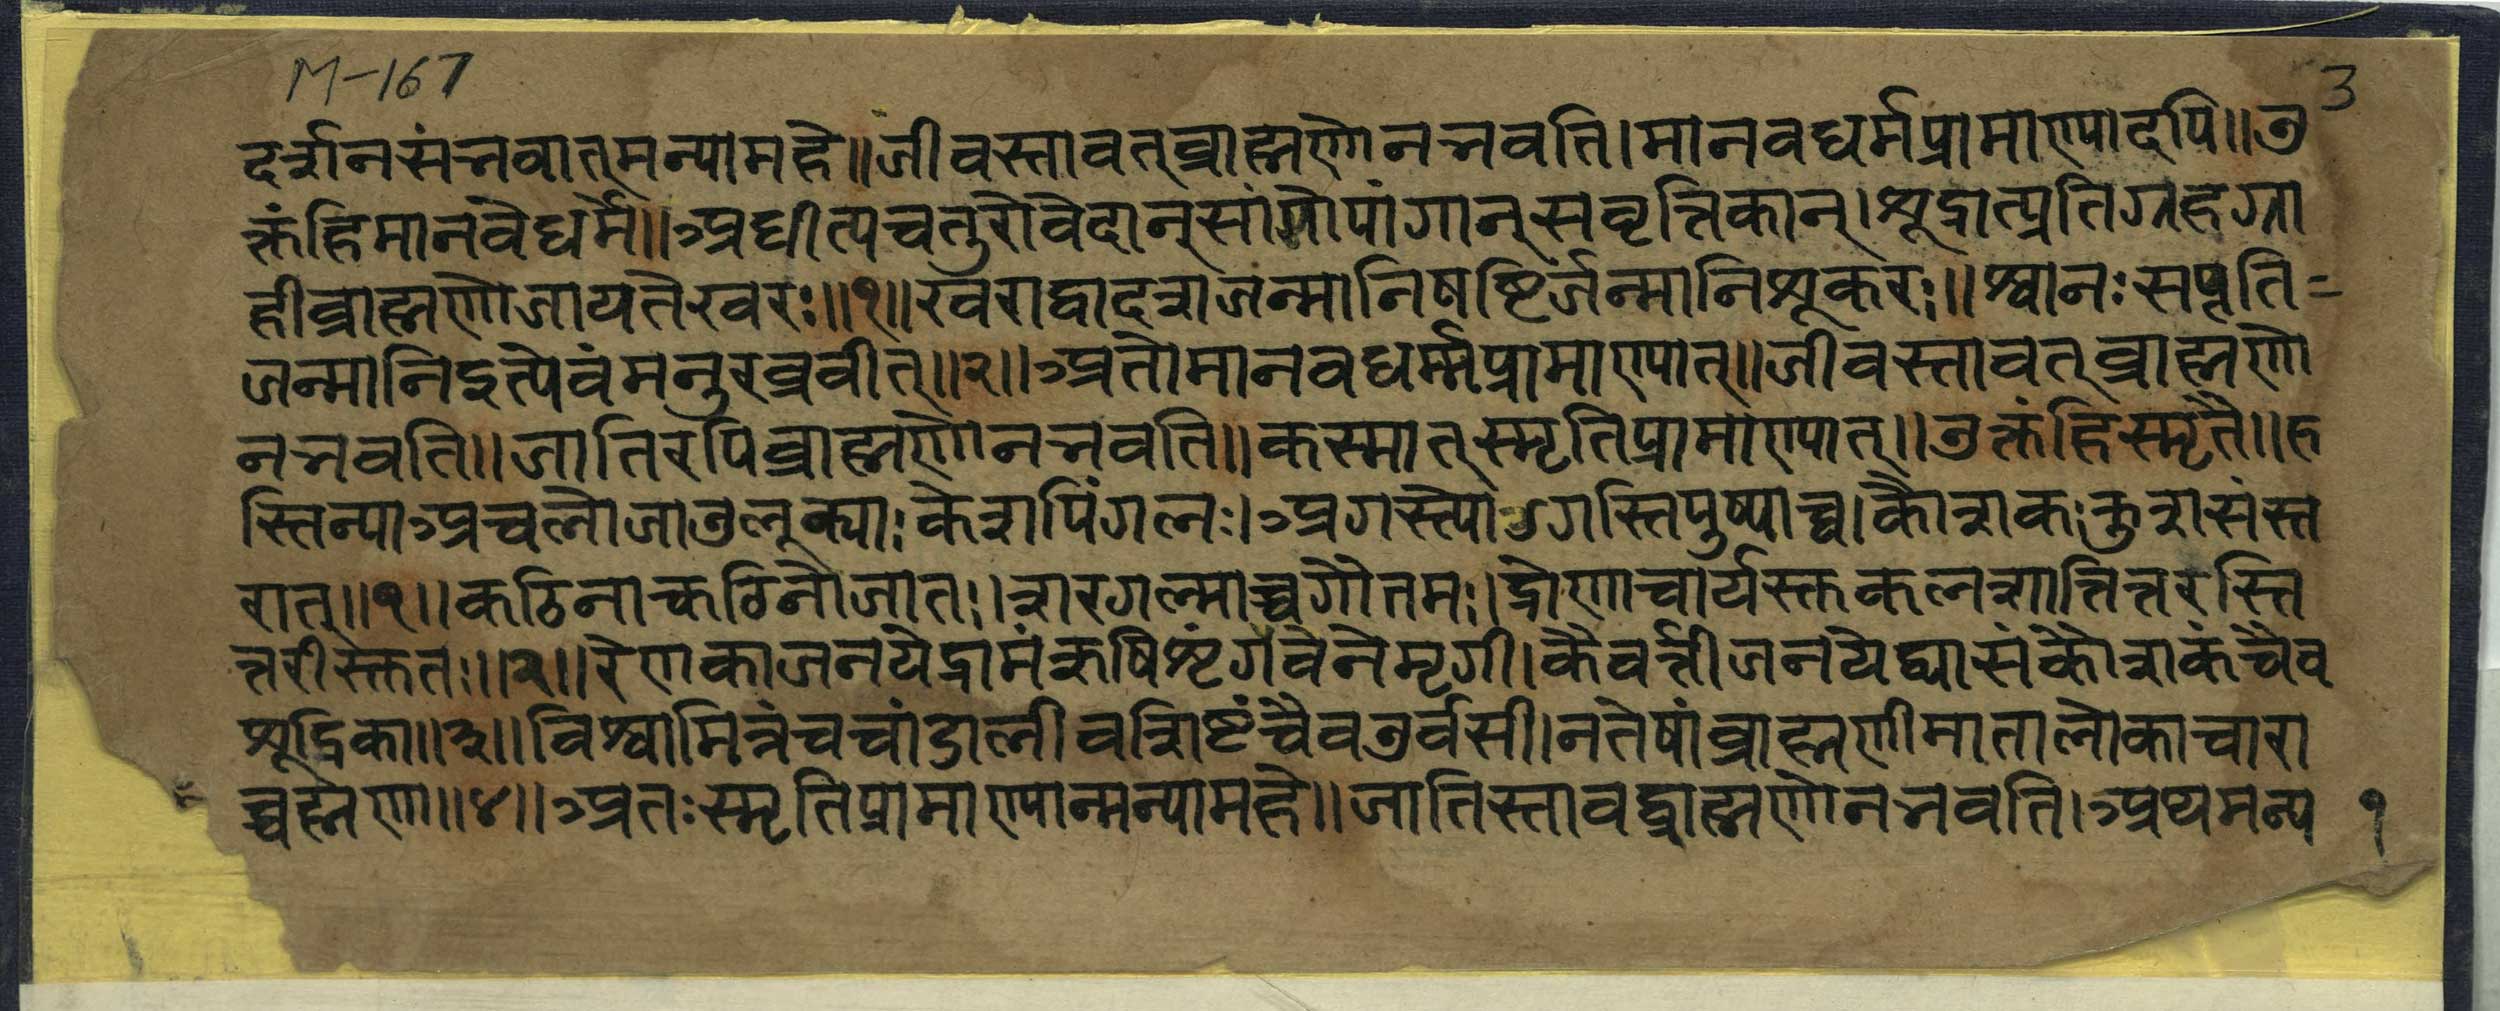 M-167
3
दर्शनसंभवात्मन्यामहे॥जीवस्तावत्ब्राह्मणोनभवति।मानवधर्मप्रामाण्यादपि॥उ
क्तंहिमानवेधर्मे॥अधीत्यचतुरोवेदान्सांगोपांगान्सवृत्तिकान्।श्रूद्रात्प्रतिग्रहग्रा
हीब्राह्मणोजायतेखरः॥१॥खराद्वादशजन्मानिषष्टिर्जन्मानिश्रूकरः॥श्वानःसप्तति=
जन्मानिइत्येवंमनुरब्रवीत्॥२॥अतोमानवधर्म्मप्रामाण्यात्॥जीवस्तावत्ब्राह्मणो
नभवति॥जातिरपिब्राह्मणोनभवति॥कस्मात्स्मृतिप्रामाण्यात्॥उक्तंहिस्मृतै॥ह
स्तिन्याअचलोजातउलूक्याःकेशपिंगलः।अगस्त्योऽगस्तिपुष्पाच्च।कौशकःकुशसंस्त
रात्॥१॥कठिनाकठिनोजातः।शरगल्माच्चगौतमः।द्रोणाचार्यस्तुकलशात्तित्तरस्ति
त्तरीस्तुतः॥२॥रेणकाजनयेद्रामंऋषिशृंगवनेमृगी।कैवर्त्तीजनयेद्व्यासंकौशकंचैव
श्रूद्रिका॥३॥विश्वामित्रंचचांडालीवशिष्टंचैवउर्वसी।नतेषांब्राह्मणीमातालोकाचारा
च्चब्रह्मणा॥४॥अतःस्मृतिप्रामाण्यान्मन्यामहे॥जातिस्तावद्ब्राह्मणोनभवति।अथमन्य
१